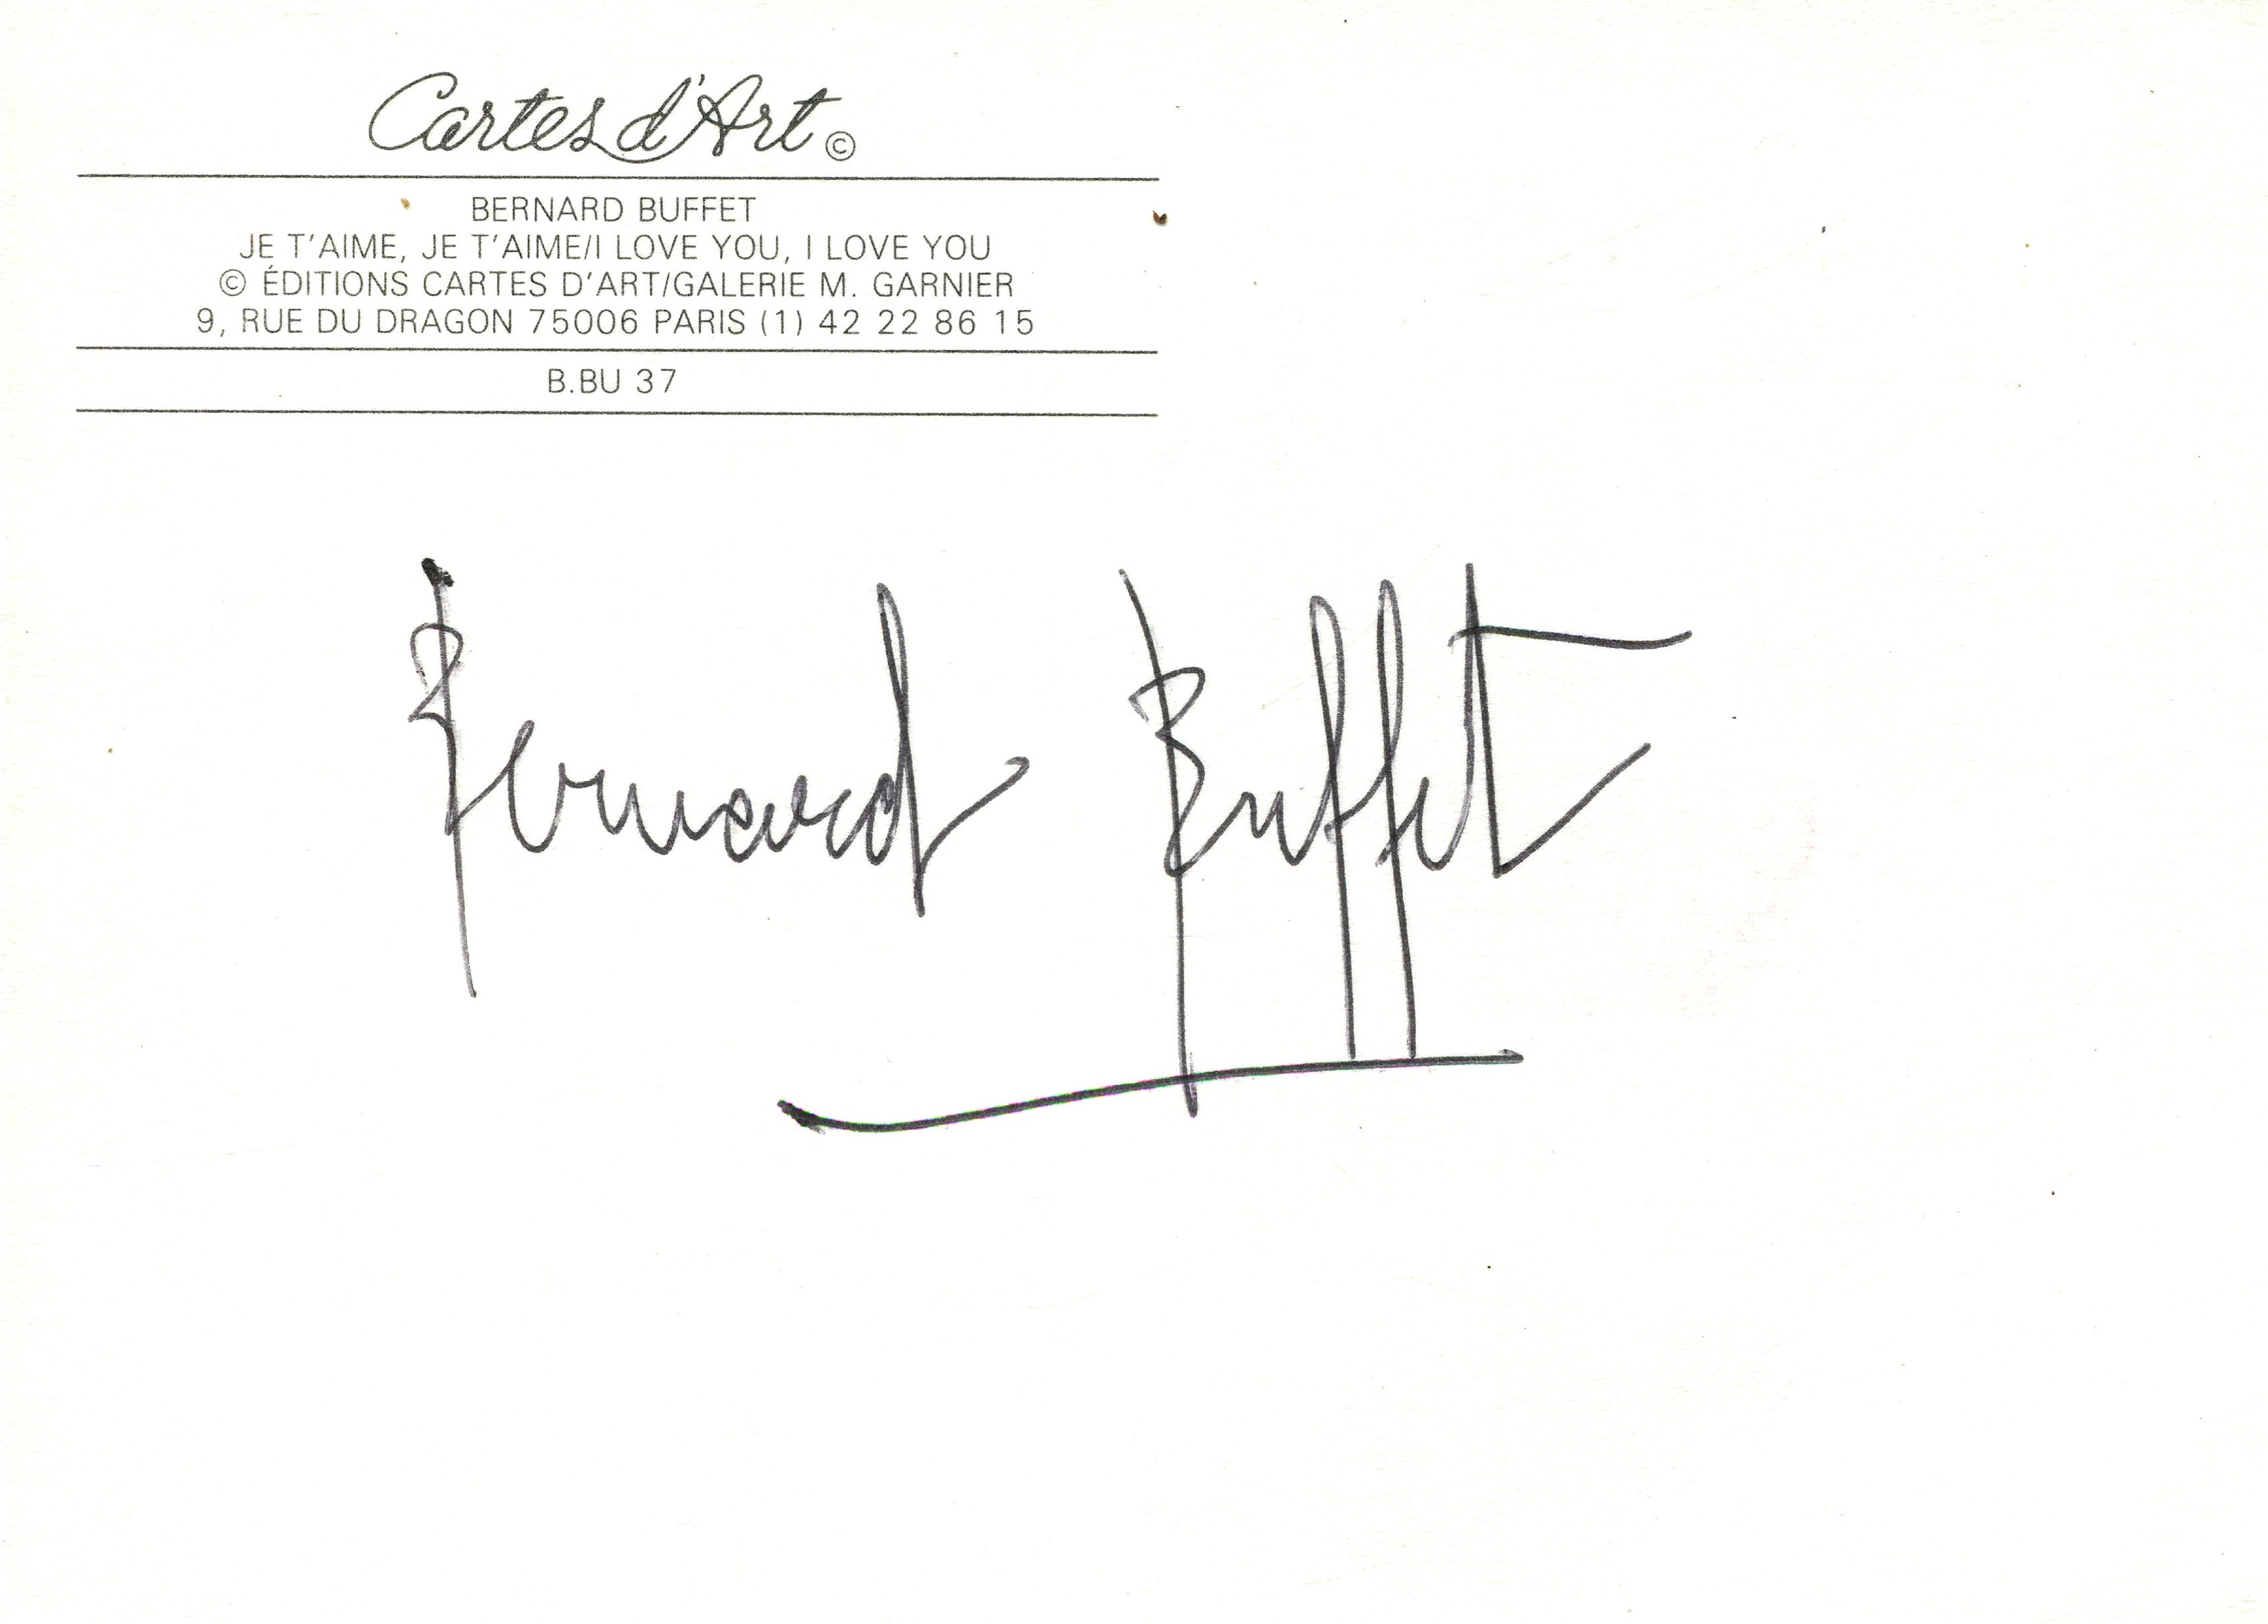 Cartes d'Art ©
BERNARD BUFFET
JE T'AIME, JE T'AIME/I LOVE YOU, I LOVE YOU
© ÉDITIONS CARTES D'ART/GALERIE M. GARNIER
9, RUE DU DRAGON 75006 PARIS (1) 42 22 86 15
B.BU 37
Bernard Buffet